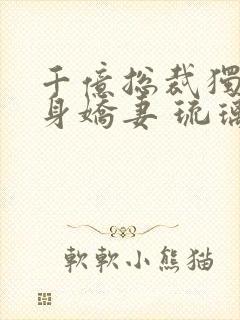 千億總裁獨
身嬌妻 琉璃
軟軟小熊猫